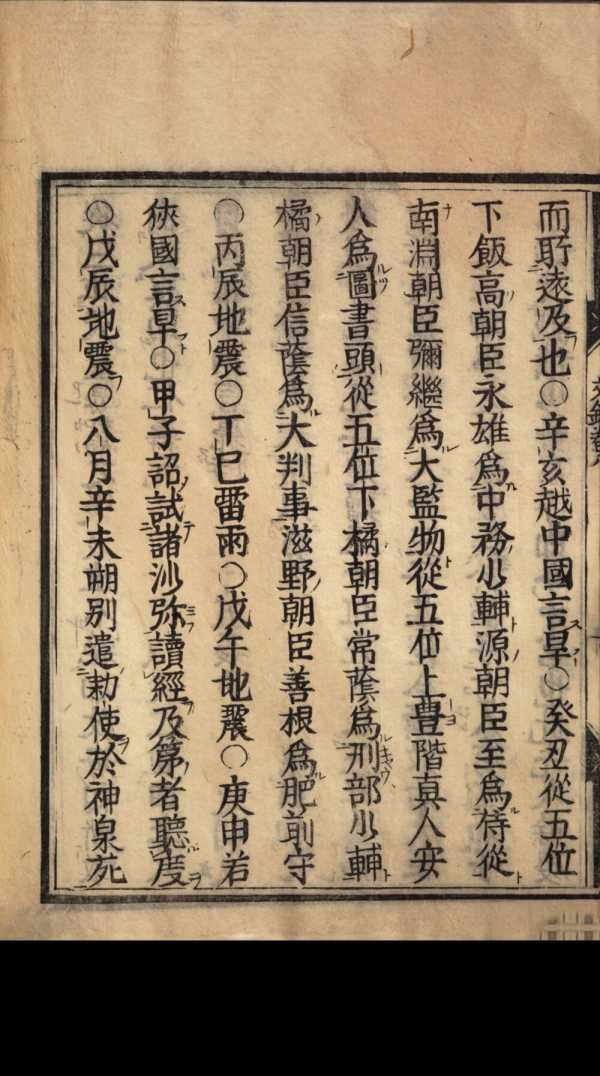 而所遠及也○辛亥越中國言旱○癸丑從五位
下飯高朝臣永雄為中務少輔源朝臣至為侍從
南淵朝臣彌繼為大監物從五位上豊階真人安
人為圖書頭從五位下橘朝臣常蔭為刑部少輔
橘朝臣信蔭為大判事滋野朝臣善根為肥前守
○丙辰地震○丁巳雷雨○戊午地震○庚申若
狹國言旱○甲子詔試諸沙弥讀經及第者聽度
○戊辰地震○八月辛未朔別遣勅使於神泉苑